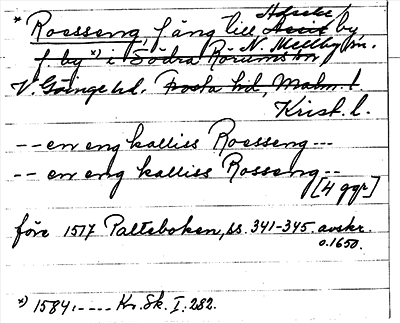 * Roesseng, f äng till Acsie by
f. by *) i Södra Rörums sn N. Mellby sn.
V. Göinge hd. Frosta hd, Malm. l.
Krist. l.
-- en eng kalliss Roesseng ---
-- en eng kalliss Rosseng --
[4 ggr]
före 1517 Palteboken, ss. 341-345. avskr.
o. 1650.
*) 1584. ---- Kr. Sk. I: 282.